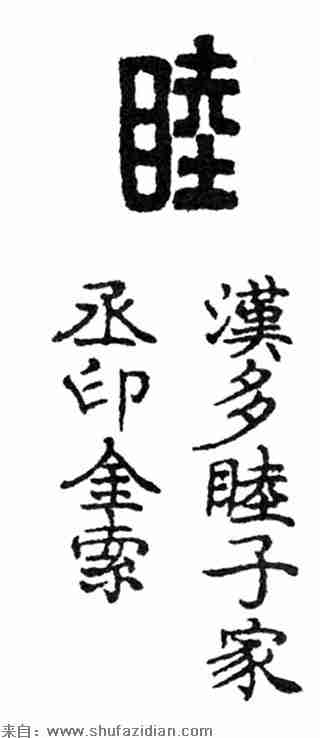 睦
漢多睦子家
丞印金索
来自：www.shufazidian.com